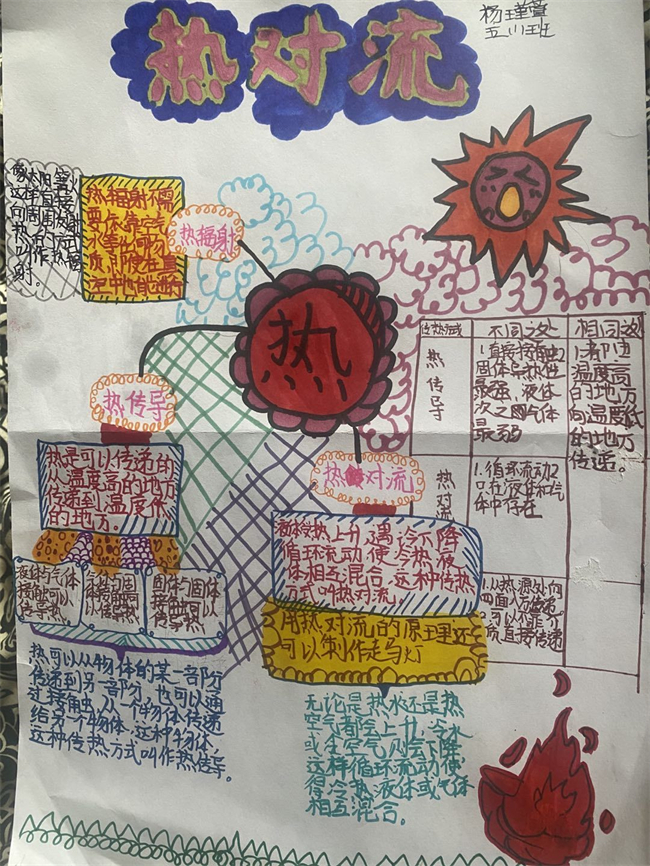 热对流
杨瑾萱
五(1)班
热辐射不需
要依靠空气
水等任何物
质,即使在真
空中也能进行
热辐射
热
热传导
热是可以传递的
从温度高的地方
传递到温度低
的地方。
液体与气体
接触可以
传导热
气体与固
体接触可
以传导热
固体与固体
接触可以
传导热
热可以从物体的某一部分
传递到另一部分,也可以通
过接触,从一个物体传递
给另一个物体,这种
这种传热方式叫作热传导。
热对流
液体受热上升,遇冷下降
循环流动,使冷热液
体相互混合,这种传热
方式叫热对流。
用热对流的原理还
可以制作走马灯
无论是热水还是热
空气都会上升,冷水
或冷空气则会下降
这样循环流动使
得冷热液体或气体
相互混合。
传热方式
不同之处
相同之处
热传导
1.直接接触2.
固体导热性
最强,液体
次之,气体
最弱
1.都由
温度高
的地方
向温度低
的地方
传递。
热对流
1.循环流动2.
只在液体和气
体中存在
1.从热源处向
四面八方传递
2.可以不靠介
质直接传递